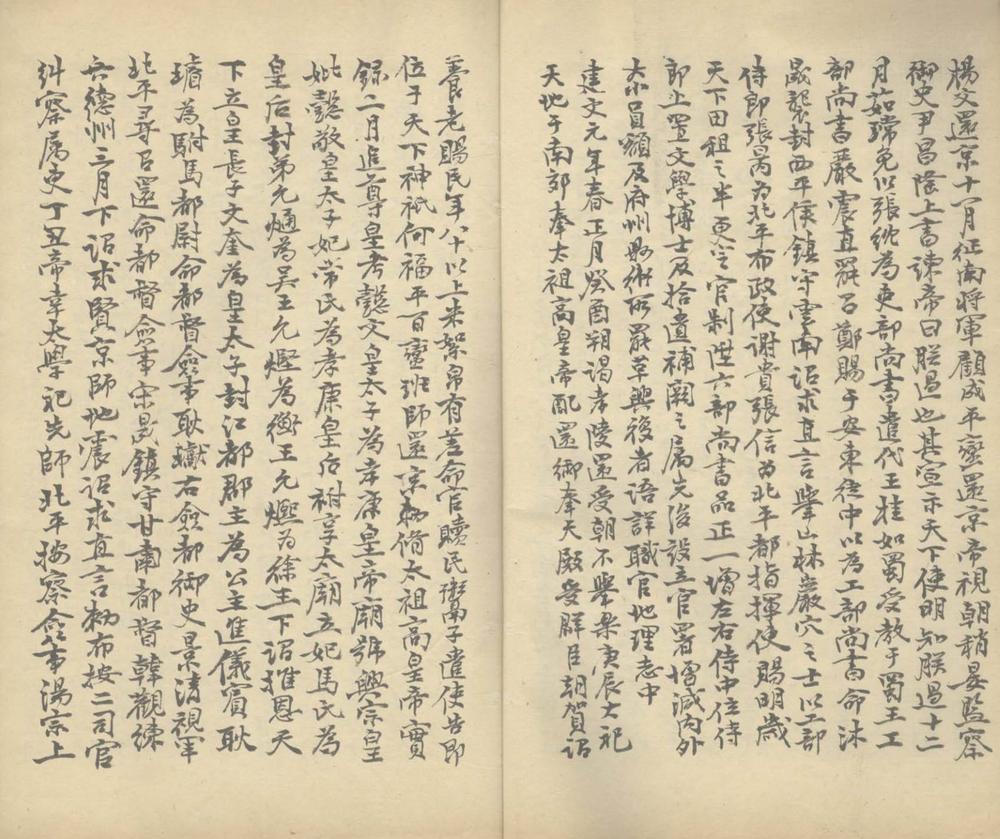 楊文還京十一月征南將軍顧成平蠻還京帝視朝稍晏監察
御史尹昌隆上書諫帝曰朕過也其宣示天下使明知朕過十二
月茹瑺免以張紞為吏部尚書遣代王桂如蜀受教于蜀王工
部尚書嚴震直罷召鄭賜于安東徒中以為工部尚書命沐
晟襲封西平侯鎮守雲南詔求直言舉山林巖穴之士以工部
侍郎張昺為北平布政使謝貴張信為北平都指揮使賜明歲
天下田租之半更定官制陞六部尚書品正一增左右侍中位侍
郎上置文學博士及拾遺補闕之屬先後設立官署增減內外
大小員額及府州縣衛所罷革興復者語詳職官地理志中
建文元年春正月癸酉朔謁孝陵還受朝不舉樂庚辰大祀
天地于南郊奉太祖高皇帝配還御奉天殿受群臣朝賀詔
養老賜民年八十以上米絮帛有差命官贖民鬻子遣使告即
位于天下神祇何福平百蠻班師還京勑脩太祖高皇帝實
錄二月進尊皇考懿文皇太子為孝康皇帝廟號興宗皇
妣懿敬皇太子妃常氏為孝康皇后祔享太廟立妃馬氏為
皇后封弟允熥為吳王允熞為衡王允㷿為徐王下詔推恩天
下立皇長子文奎為皇太子封江都郡主為公主進儀賓耿
璿為駙馬都尉命都督僉事耿瓛右僉都御史景清視軍
北平尋召還命都督僉事宋晟鎮守甘肅都督韓觀練
兵德州三月下詔求賢京師地震詔求直言勑布按二司官
糾察屬吏丁丑帝幸太學祀先師北平按察僉事湯宗上